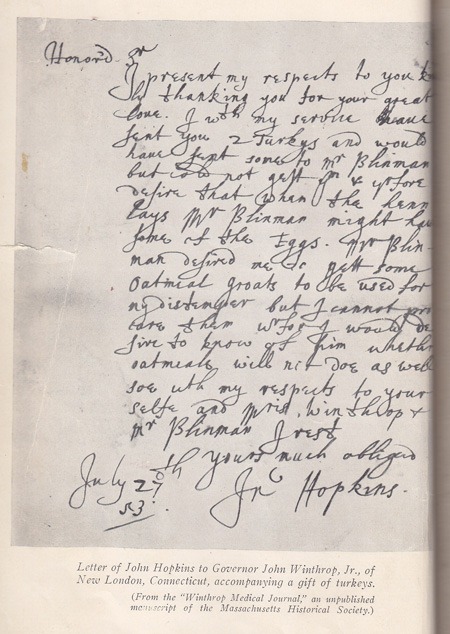 Honord Sr
I present my respects to you
ly thanking you for your great
love. I wth my service have
sent you 2 Turkys and would
have sent some to Mr Blinman
but could not gett ym & yrfore
desire that when the henn
lays Mr Blinman might hav
some of the Eggs. Mr Blin-
man desired me to gett some
oatmeal groats to be used for
my distemper but I cannot pro
cure them wrfor I would de
sire to know of him whethr
oatmeale will not doe as well
soe wth my respects to your
selfe and Mris. Winthrop &
Mr Blinman I rest
yours much obliged
July 27th
Jno Hopkins.
53.
Letter of John Hopkins to Governor John Winthrop, Jr., of
New London, Connecticut, accompanying a gift of turkeys.
(From the "Winthrop Medical Journal," an unpublished
manuscript of the Massachusetts Historical Society.)